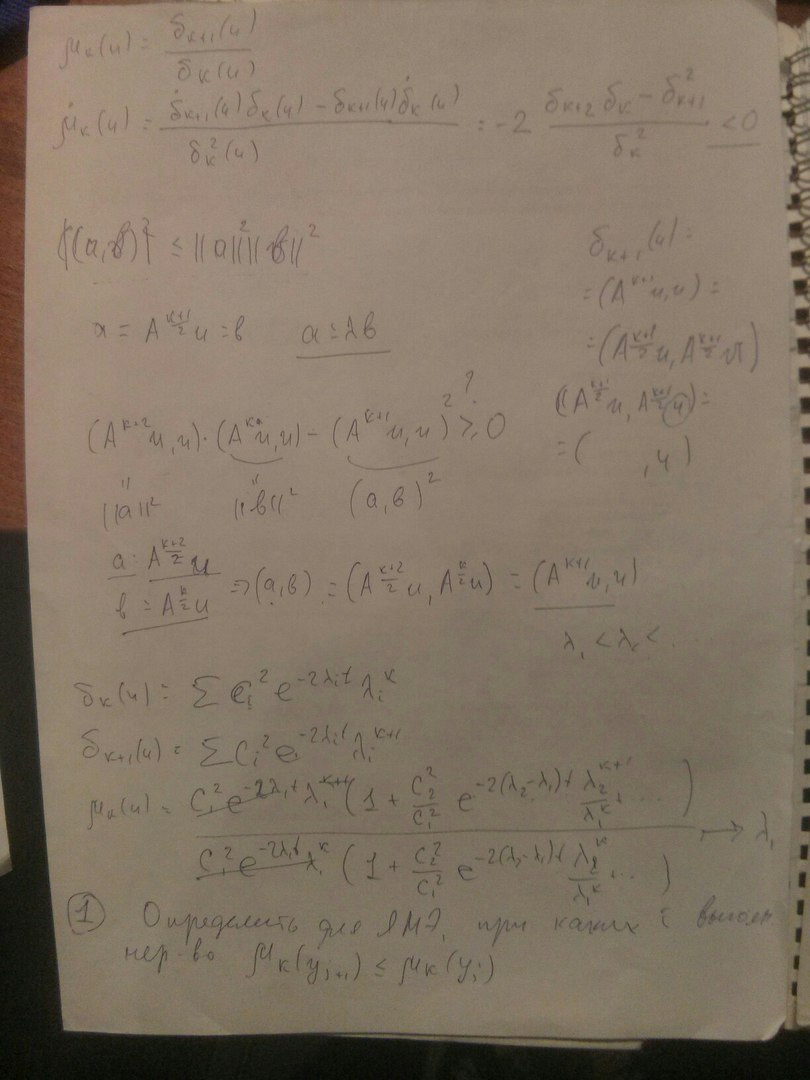 μ_k(u) = δ_{k+1}(u) / δ_k(u)
μ̇_k(u) = (δ̇_{k+1}(u) δ_k(u) − δ_{k+1}(u) δ̇_k(u)) / δ_k²(u) = −2 (δ_{k+2} δ_k − δ²_{k+1}) / δ_k² < 0
|(a, b)|² ≤ ||a||² ||b||²
δ_{k+1}(u) =
= (A^{k+1}u, u) =
x = A^{(k+1)/2} u = b   a = λb
= (A^{(k+1)/2} u, A^{(k+1)/2} u)
(A^{(k+1)/2} u, A^{(k+1)/2} u) =
= (   , u)
(A^{k+2}u, u)·(A^k u, u) − (A^{k+1}u, u)² ≥ 0 ?
||a||²   ||b||²   (a, b)²
a = A^{(k+2)/2} u
b = A^{k/2} u ⇒ (a, b) = (A^{(k+2)/2} u, A^{k/2} u) = (A^{k+1} u, u)
λ₁ < λ₂ < .
δ_k(u) = Σ c_i² e^{−2λ_i t} λ_i^k
δ_{k+1}(u) = Σ c_i² e^{−2λ_i t} λ_i^{k+1}
μ_k(u) = c₁² e^{−2λ₁t} λ₁^{k+1} (1 + c₂²/c₁² e^{−2(λ₂−λ₁)t} λ₂^{k+1}/λ₁^k + ...) / c₁² e^{−2λ₁t} λ₁^k (1 + c₂²/c₁² e^{−2(λ₂−λ₁)t} λ₂^k/λ₁^k ...) → λ₁
① Определить для ЯМЭ, при каких τ выполн.
нер-во μ_k(y_{j+1}) ≤ μ_k(y_j)